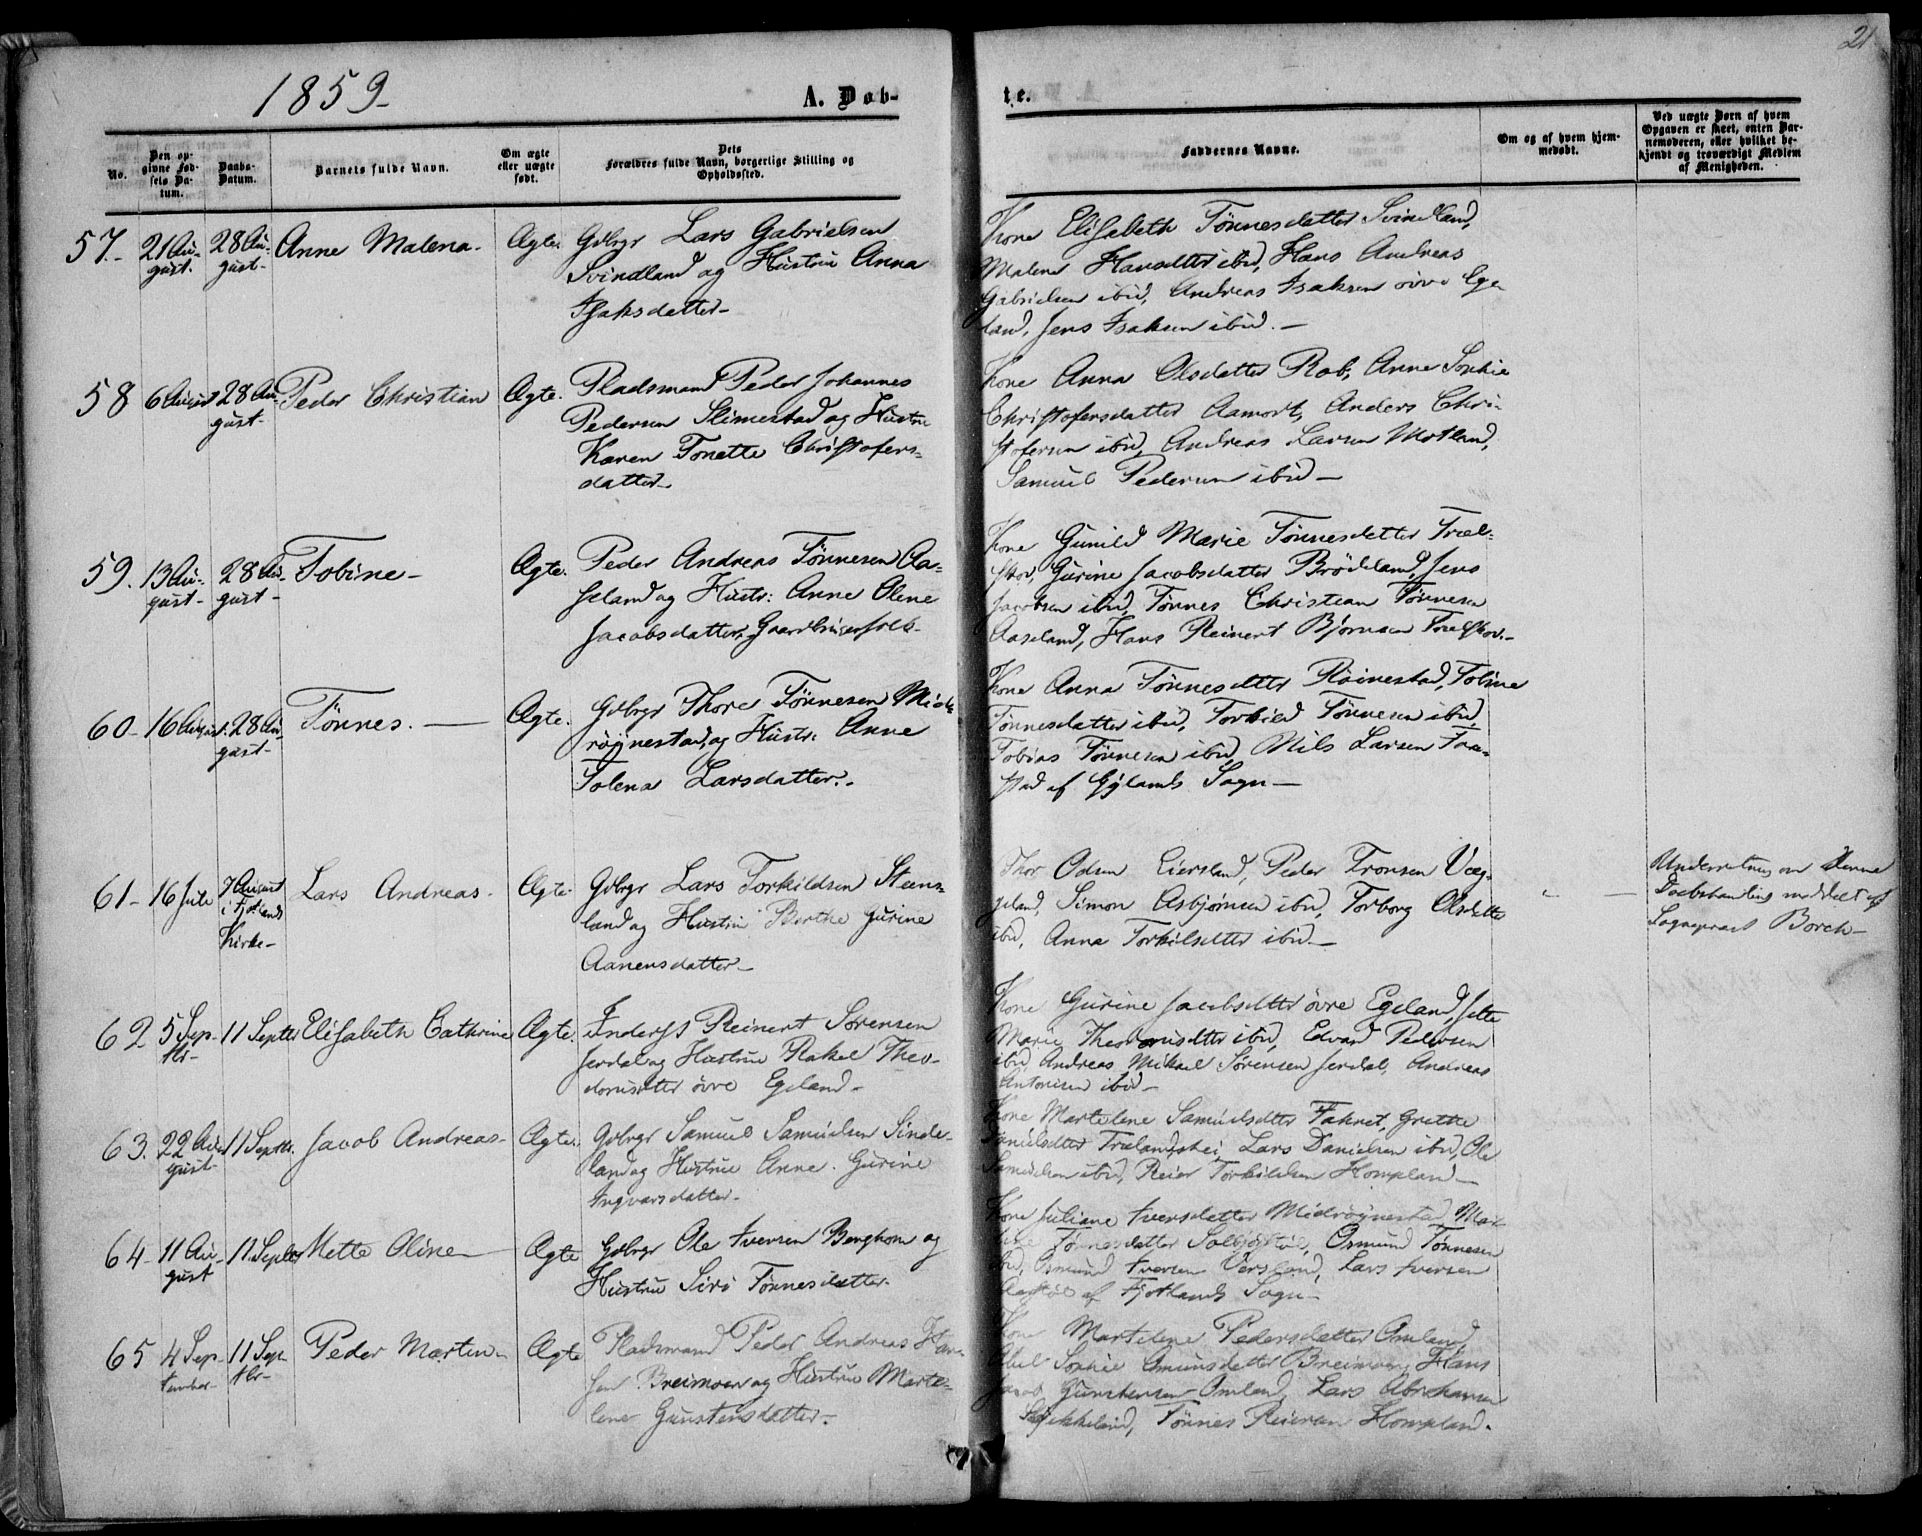 1859-
A. Døb-
te.
21
No.
Den op-
givne Fød-
sels Da-
tum.
Daabs-
Datum.
Barnets fulde Navn.
Om ægte
eller uægte
født.
Dets
Forældres fulde Navn, borgerlige Stilling og
Opholdssted.
Faddernes Navne.
Om og af hvem hjem-
medøbt.
Ved uægte Børn af hvem
Opgaven er skeet, enten Bar-
nemoderen, eller hvilket be-
kjendt og troværdigt Medlem
af Menigheden.
57.- 21 Au-
gust.
28 Au-
gust-
Anne Malena-
Ægte.
Gdbrgr Lars Gabrielsen
Svindland og Hustru Anna
Isaksdatter-
Kone Elisabeth Tønnesdatter Svindland,
Malene Hansdtter ibid, Hans Andreas
Gabrielsen ibid, Andreas Isaksen øvre Ege-
land, Jens Isaksen ibid.-
58 6 August
28 Au-
gust-
Peder Christian
Ægte.
Pladsmand Peder Johannes
Pedersen Slimestad og Hustru
Karen Tonette Christofers-
datter-
Kone Anna Olsdatter Rob, Anne Sophie
Christofersdatter Aamodt, Anders Chri-
stofersen ibid, Andreas Larsen Motland,
Samuel Pedersen ibid-
59. 13 Au-
gust-
28 Au-
gust-
Tobine-
Ægte.
Peder Andreas Tønnesen Aa-
seland og Hustr: Anne Olene
Jacobsdatter, Gaardbrugerfolk-
Kone Gunild Marie Tønnesdatter Træl-
skov, Gurine Jacobsdatter Brødeland, Jens
Jacobsen ibid, Tønnes Christian Tønnesen
Aaseland, Hans Reinert Bjørnsen Trælskov.-
60- 16 August.
28 Au-
gust-
Tønnes.-
Ægte.
Gdbrgr Thore Tønnesen Mid-
røynestad, og Hustr: Anne
Tolena Larsdatter.-
Kone Anna Tønnesdtter Røinestad, Tobine
Tønnesdatter ibid, Torkild Tønnesen ibid,
Tobias Tønnesen ibid, Nils Larsen
stad af Gylands Sogn-
61- 16 Jule
7 August
i Fjotlands
Kirke-
Lars Andreas-
Ægte.
Gdbrgr Lars Torkildsen Steens-
land og Hustru Berthe Gurine
Aanensdatter-
Thor Odsen Eiersland, Peder Tronsen Væg-
geland, Simon Asbjørnsen ibid, Torborg Olsdatter
ibid, Anna Torkilsdtter ibid-
Underretning om denne
Daabshandling meddelt af
Sognepræst Borch-
62 5 Sep-
tbr-
11 Septbr
Elisabeth Cathrine
Ægte.
Inderst Reinert Sørensen
Jerdal og Hustru Rakel Theo-
dorusdtter øvre Egeland-
Kone Gurine Jacobsdtter øvre Egeland, Jette
Marie Theodorusdtter ibid, Edvard Pedersen
ibid, Andreas Mikael Sørensen Jerdal, Andreas
Antonisen ibid-
63. 22 Au-
gust-
11 Septbr.
Jacob Andreas-
Ægte.
Gdbrgr Samuel Samuelsen Sinde-
land og Hustru Anne Gurine
Ingvarsdatter-
Kone Martelene Samuelsdtter Faknet, Grethe
Danielsdtter Trælandshei, Lars Danielsen ibid, Ole
Samuelsen ibid, Reier Torkildsen Hompland-
64- 11 Au-
gust
11 Septbr
Mette Oline-
Ægte
Gdbrgr Ole Iversen Berghom og
Hustru Siri Tønnesdatter-
Kone Juliane Iversdatter Midrøynestad,
Tønnesdatter Solbjørstøl, Osmund Tønnesen
ibid, Osmund Iversen Versland, Lars Iversen
af Fjotlands Sogn-
65 4 Sep-
tember-
11 Sep-
tbr-
Peder Martin-
Ægte
Pladsmand Peder Andreas Han-
sen Breimoen og Hustru Marte-
lene Gunstensdatter-
Kone Martelene Pedersdatter Omland,
Abel Sophie Omunsdatter Breimoen, Hans
Jacob Gunstensen Omland, Lars Abrahamsen
Tønnes Reiersen Hompland.